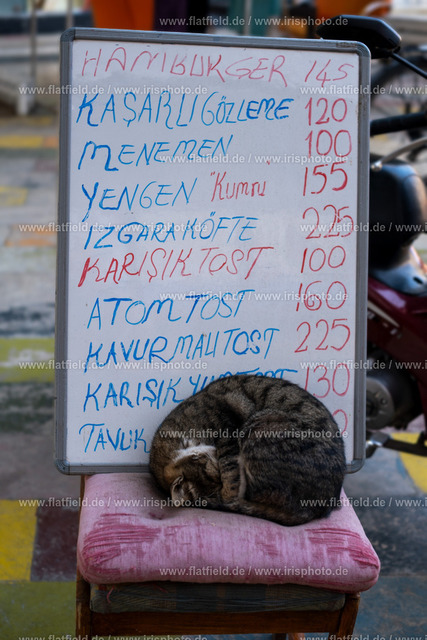 HAMBURGER 145
KAŞARLI GÖZLEME 120
MENEMEN 100
YENGEN "Kumru 155
IZGARA KÖFTE 225
KARIŞIK TOST 100
ATOM TOST 160
KAVURMALI TOST 225
KARIŞIK 130
TAVUK
www.flatfield.de / www.irisphoto.de